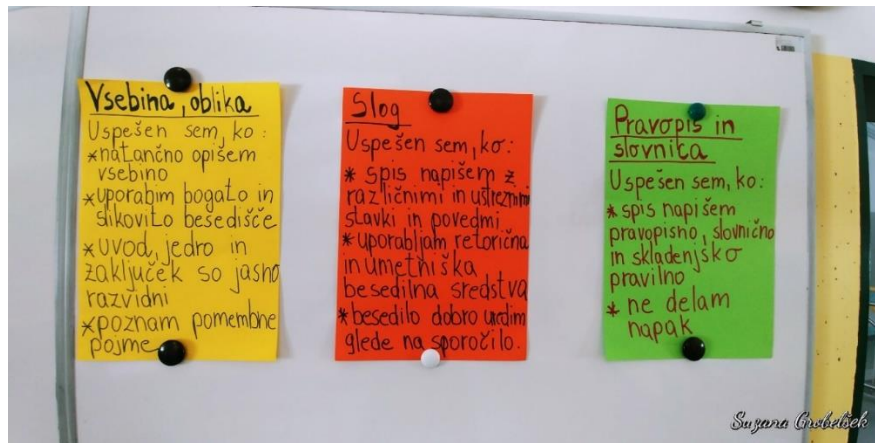 Vsebina, oblika
Uspešen sem, ko:
*natančno opišem
vsebino
*uporabim bogato in
slikovito besedišče
*uvod, jedro in
zaključek so jasno
razvidni
*poznam pomembne
pojme
Slog
Uspešen sem, ko:
* spis napišem z
različnimi in ustreznimi
stavki in povedmi
*uporabljam retorična
in umetniška
besedilna sredstva
*besedilo dobro uredim
glede na sporočilo.
Pravopis in
slovnica
Uspešen sem, ko:
*spis napišem
pravopisno, slovnično
in skladenjsko
pravilno
* ne delam
napak
Suzana Grobelšek